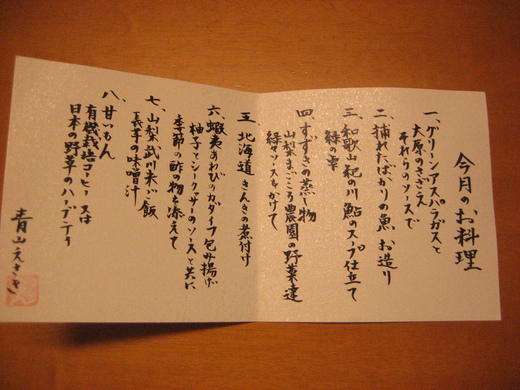 今月のお料理
一、グリーンアスパラガスと
大原のさざえ
それぞれのソースで
二、捕れたばかりの魚 お造り
三、和歌山 紀の川 鮎のスープ仕立て
緑の雫
四、すずきの蒸し物
山梨まごころ農園の野菜達
緑々ソースをかけて
五、北海道 きんきの煮付け
六、蝦夷あわびのカダイフ包み揚げ
柚子とシークワサーのソースと共に
季節の酢の物を添えて
七、山梨 武川米 ご飯
長芋の味噌汁
八、甘いもん
有機栽培コーヒー 又は
日本の野草のハーブティー
青山えさき